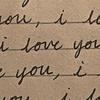 you, i lo
i love you
e you, i
you i lo